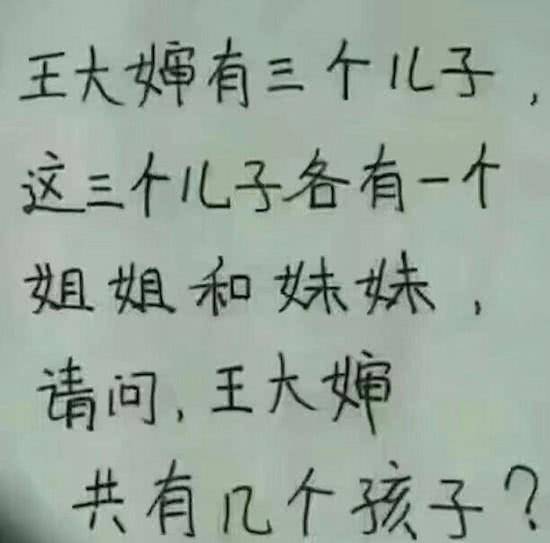 王大婶有三个儿子,
这三个儿子各有一个
姐姐和妹妹,
请问,王大婶
共有几个孩子?